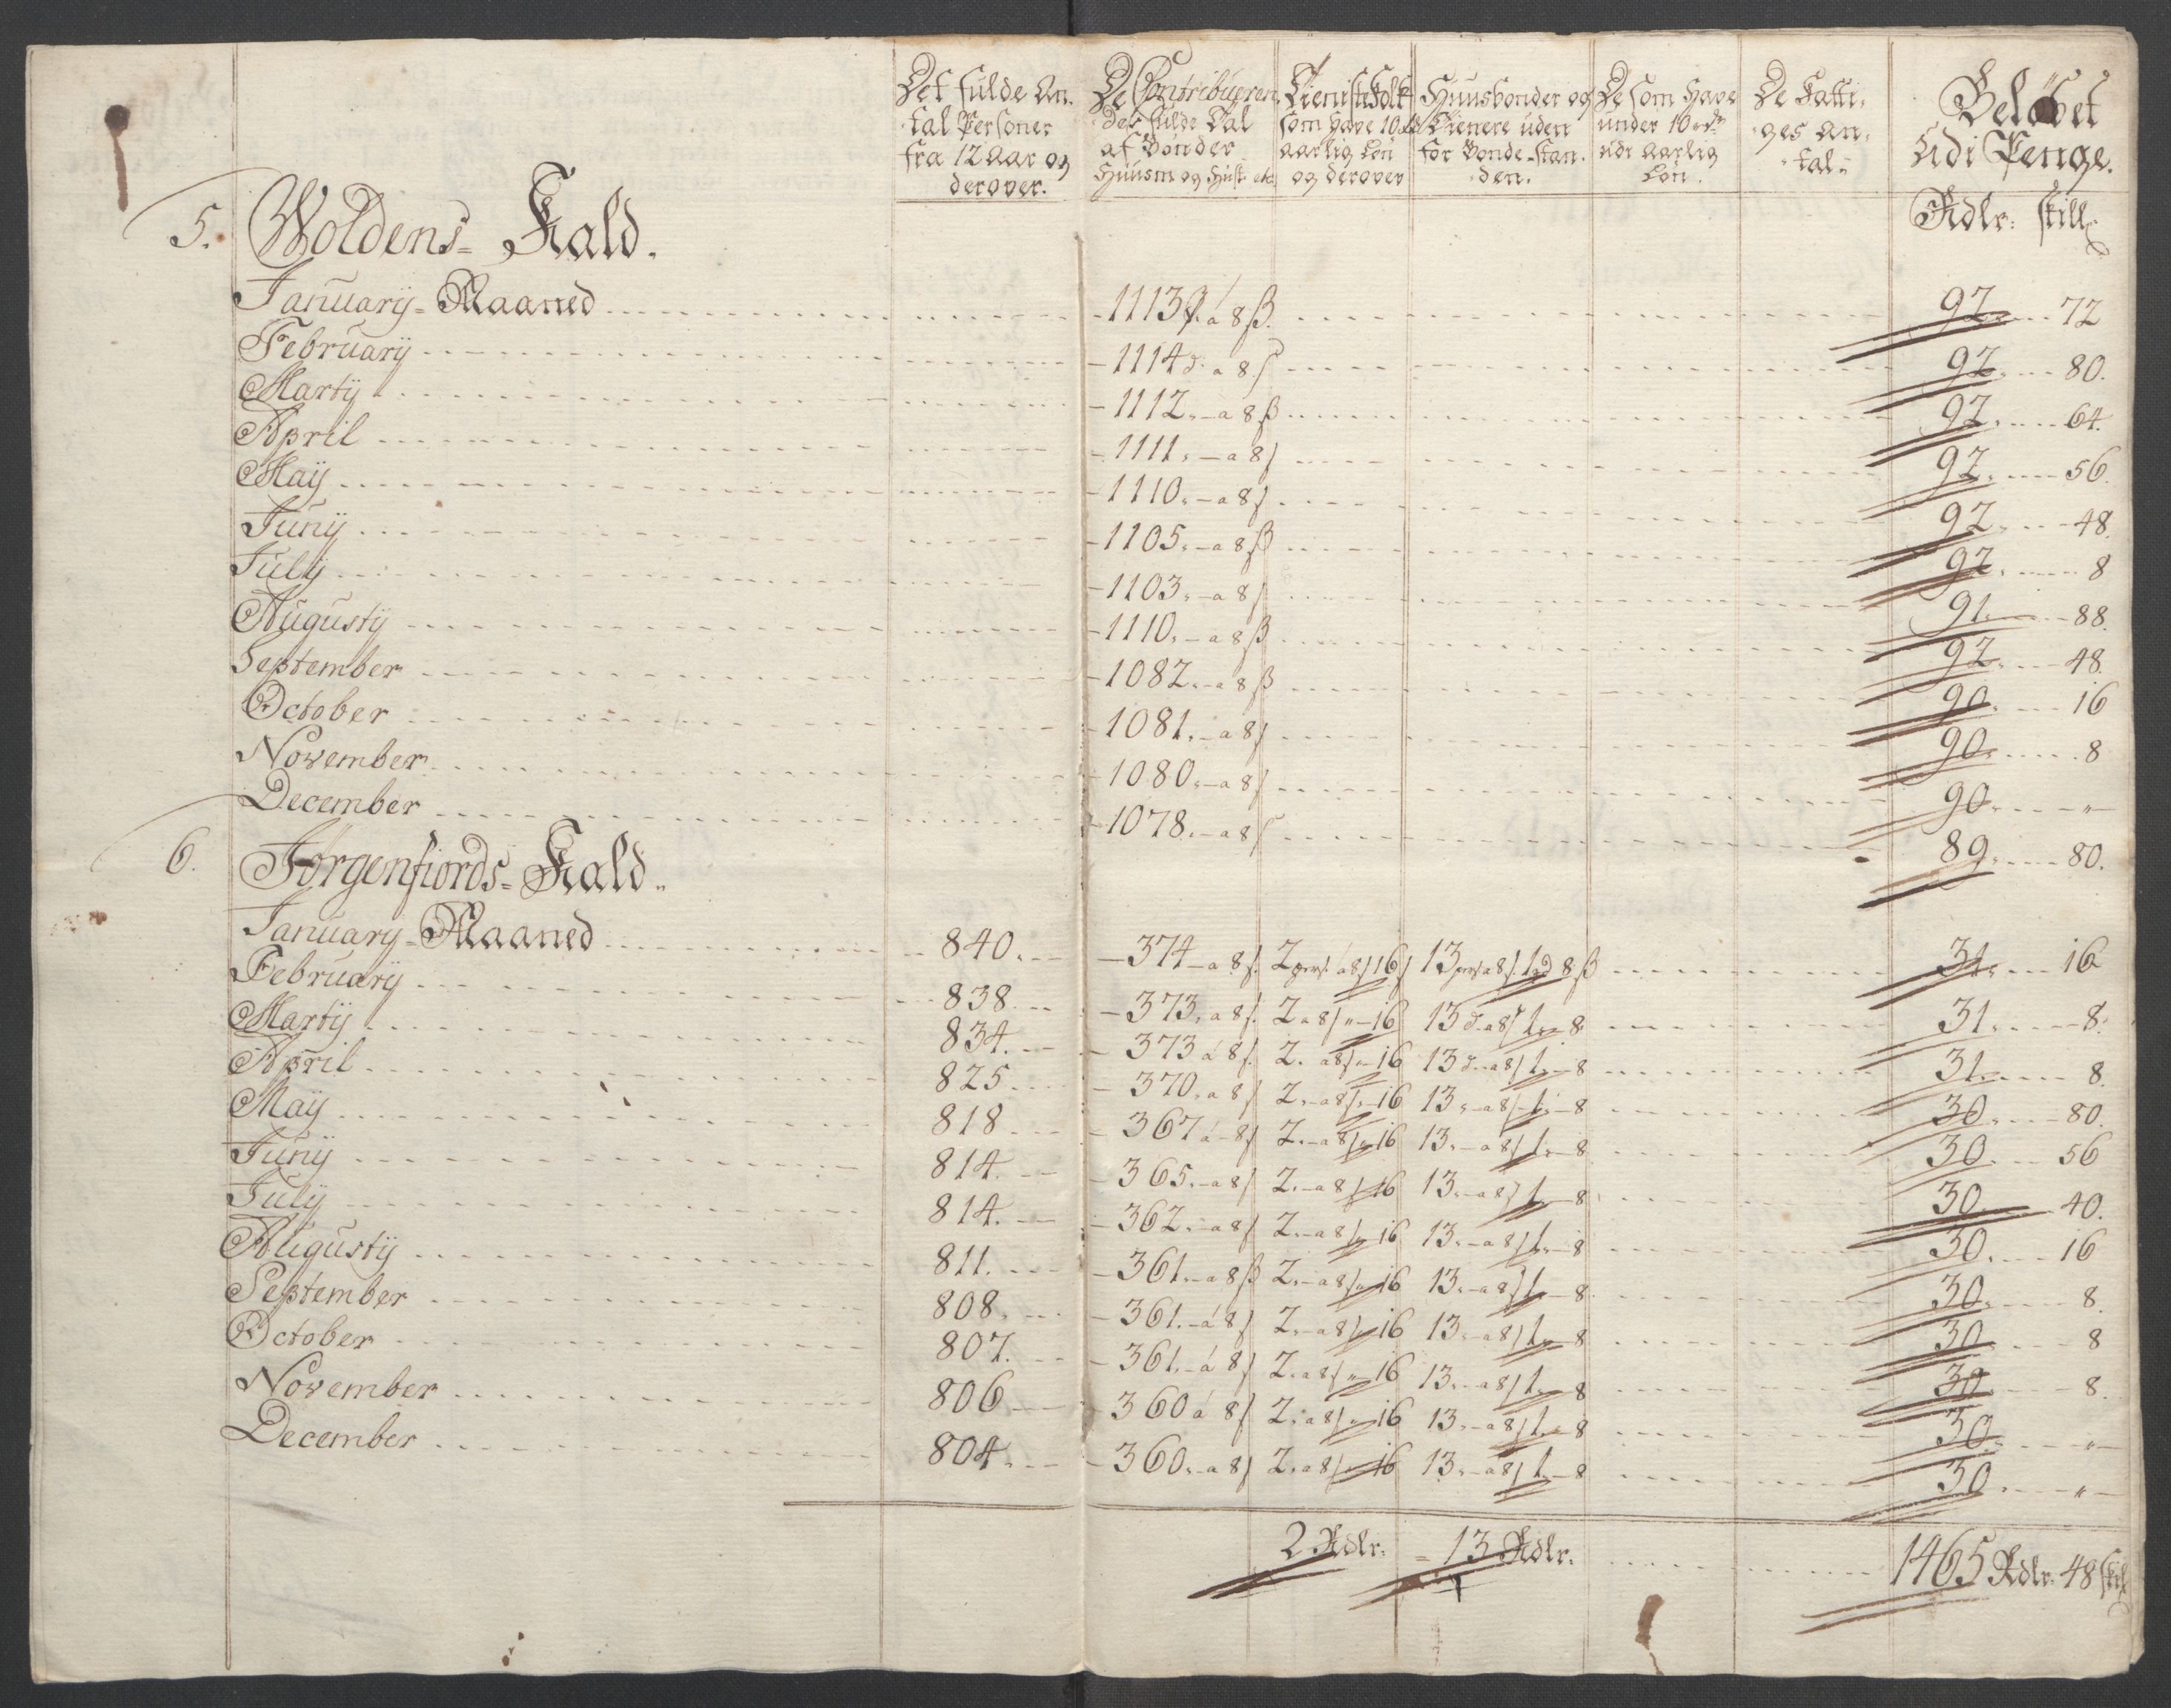 Det fulde An-
tal Personer
fra 12 Aar og
derover.
De Contribueren-
des fulde Tal
af Bønder
Huusm og Hust: etc
TienisteFolk
som have 10 rdr
aarlig Løn
og derover
Huusbonder og
Tienere uden
for Bonde-Stan-
den.
De som have
under 10 rdr
aarlig
Løn.
De Fatti-
ges An-
tal.
Beløbet
Udi Penge.
Rdlr: skill:
5. Woldens Kald.
January Maaned 1113 P. á 8 ß. 92. 72
February 1114 d: a 8 ß 92. 80.
Martÿ 1112. a 8 ß 92. 64.
April 1111. a 8 ß 92. 56.
Maÿ 1110. a 8 ß 92. 48.
Junÿ 1105. a 8 ß 92. 8
Julÿ 1103. a 8 ß 91. 88.
Augustÿ 1110. a 8 ß 92. 48.
September 1082. a 8 ß 90. 16
October 1081. a 8 ß 90. 8
November 1080. a 8 ß 90. "
December 1078. a 8 ß 89. 80.
6. Jørgenfiords Kald.
January Maaned 840. 374 a 8 ß. 2 pers: a 8 ß 16 ß 13 pers a 8 ß. 1 rd 8 ß 31. 16
February 838. 373. a 8 ß. 2 a 8 ß " 16 13 d. a 8 ß 1. 8 31. 8.
Martÿ 834. 373 á 8 ß. 2. a 8 ß " 16 13 d. a 8 ß 1. 8 31. 8.
April 825. 370. a 8 ß 2. a 8 ß " 16 13. a 8 ß 1. 8 30. 80.
Maÿ 818 367 á 8 ß 2. a 8 ß " 16 13. a 8 ß 1. 8 30. 56
Junÿ 814. 365. a 8 ß 2. a 8 ß 16 13. a 8 ß 1. 8 30. 40.
Julÿ 814. 362. a 8 ß 2. a 8 ß " 16 13. a 8 ß 1. 8 30. 16
Augustÿ 811. 361. a 8 ß 2. a 8 ß " 16 13. a 8 ß 1. 8 30. 8.
September 808. 361. á 8 ß 2. a 8 ß " 16 13. a 8 ß 1. 8 30. 8
October 807. 361. á 8 ß 2. a 8 ß " 16 13. a 8 ß 1. 8 30. 8.
November 806 360 á 8 ß 2. a 8 ß " 16 13. a 8 ß 1. 8 30. "
December 804. 360. a 8 ß 2. a 8 ß " 16 13. a 8 ß 1. 8 30. "
2 Rdlr: 13 Rdlr. 1465 Rdlr. 48 skil